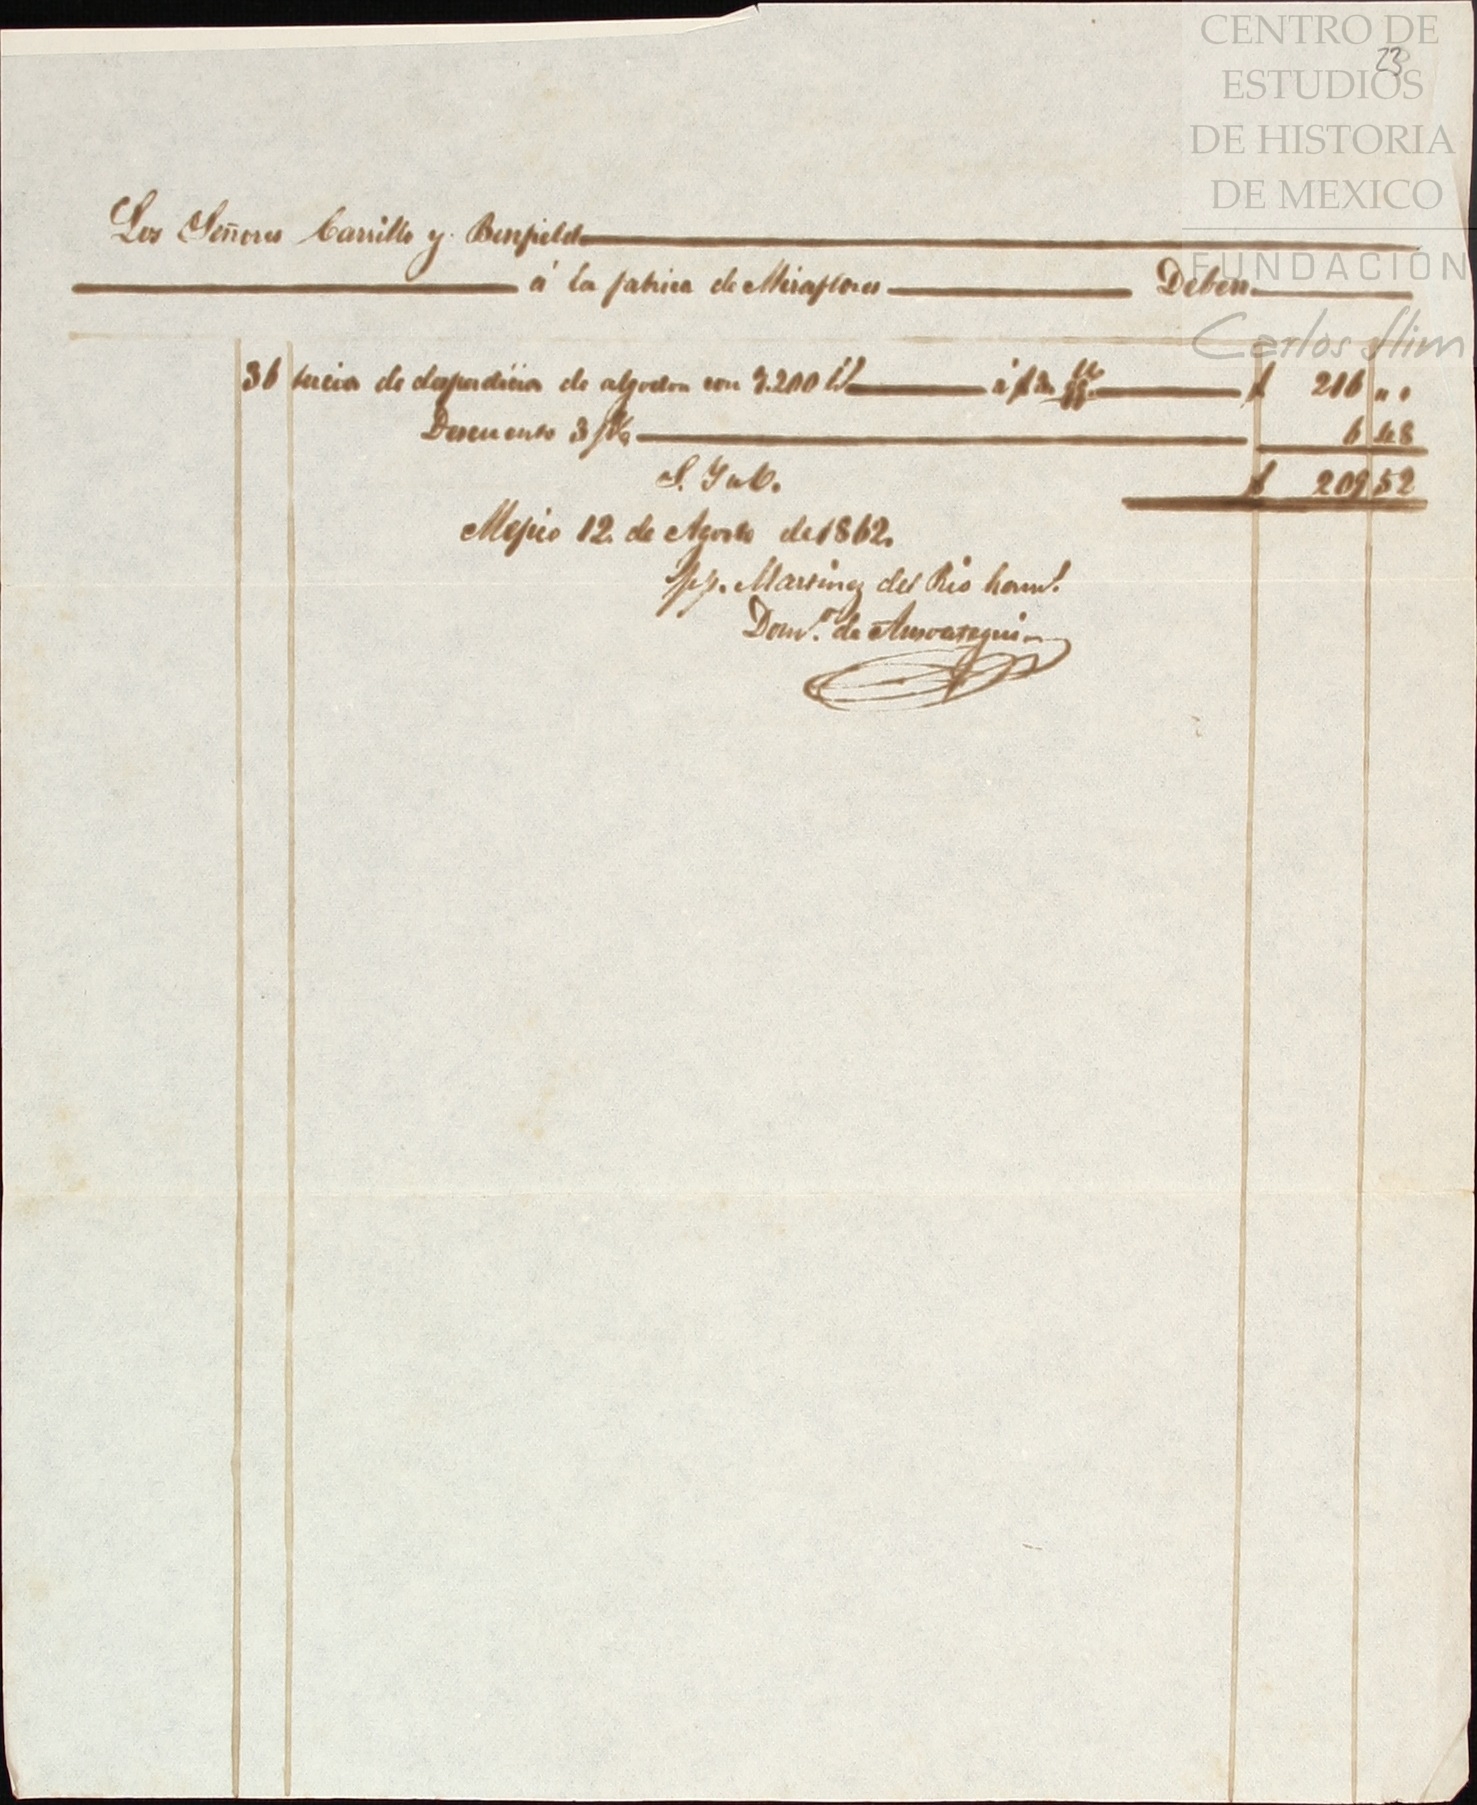 CENTRO DE
ESTUDIOS
DE HISTORIA
DE MEXICO
FUNDACIÓN
Carlos Slim
23
Los Señores Carrillo y Benfield
á la fabrica de Miraflores Deben
36 tercios de desperdicios de algodon con 7.200 lb á $ 3 $ 216 „ „
Descuento 3 p% 6 48
S. Y u O. $ 209 52
Mejico 12 de Agosto de 1862.
pp. Martinez del Rio herm.s
Dom.o de Ansoategui